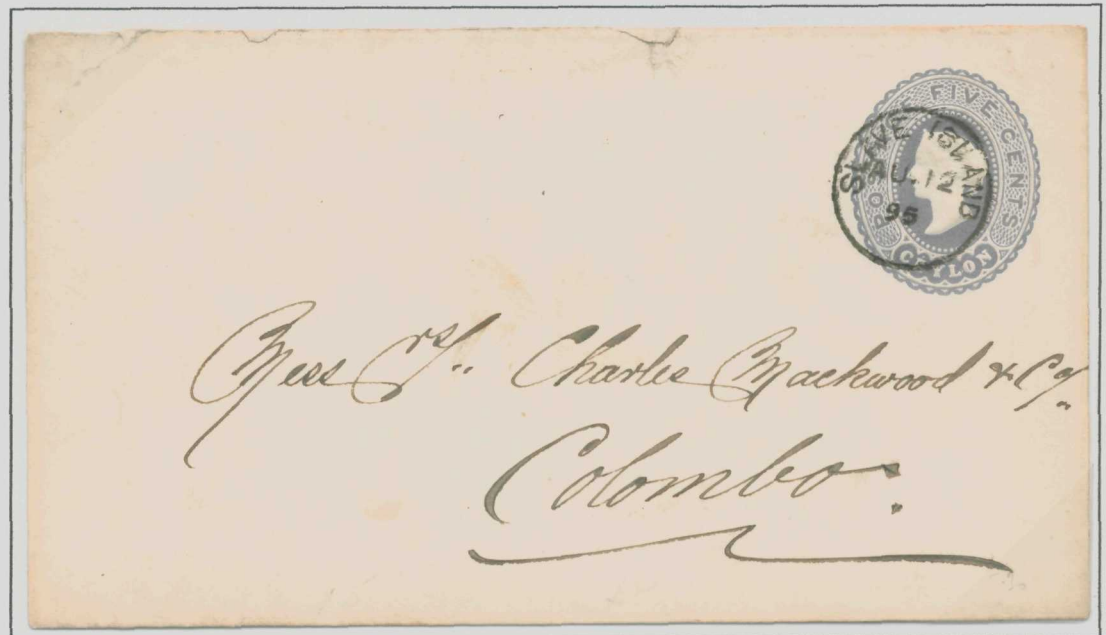 POSTAGE FIVE CENTS
CEYLON
SLAVE ISLAND
AU 12
95
Mess rs.. Charles Mackwood & Co..
Colombo.